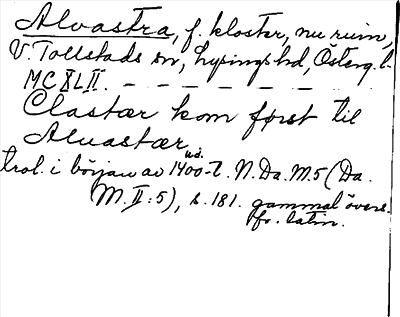 Alvastra, f. kloster, nu ruin,
V. Tollstads sn, Lysings hd, Österg. l.
MCXLII. – – – – – – –
Clastær kom først til
Alvastær
trol. i början av 1400-t. N. Da. M. 5 (Da.
M. II: 5), s. 181. gammal övers.
fr. latin.